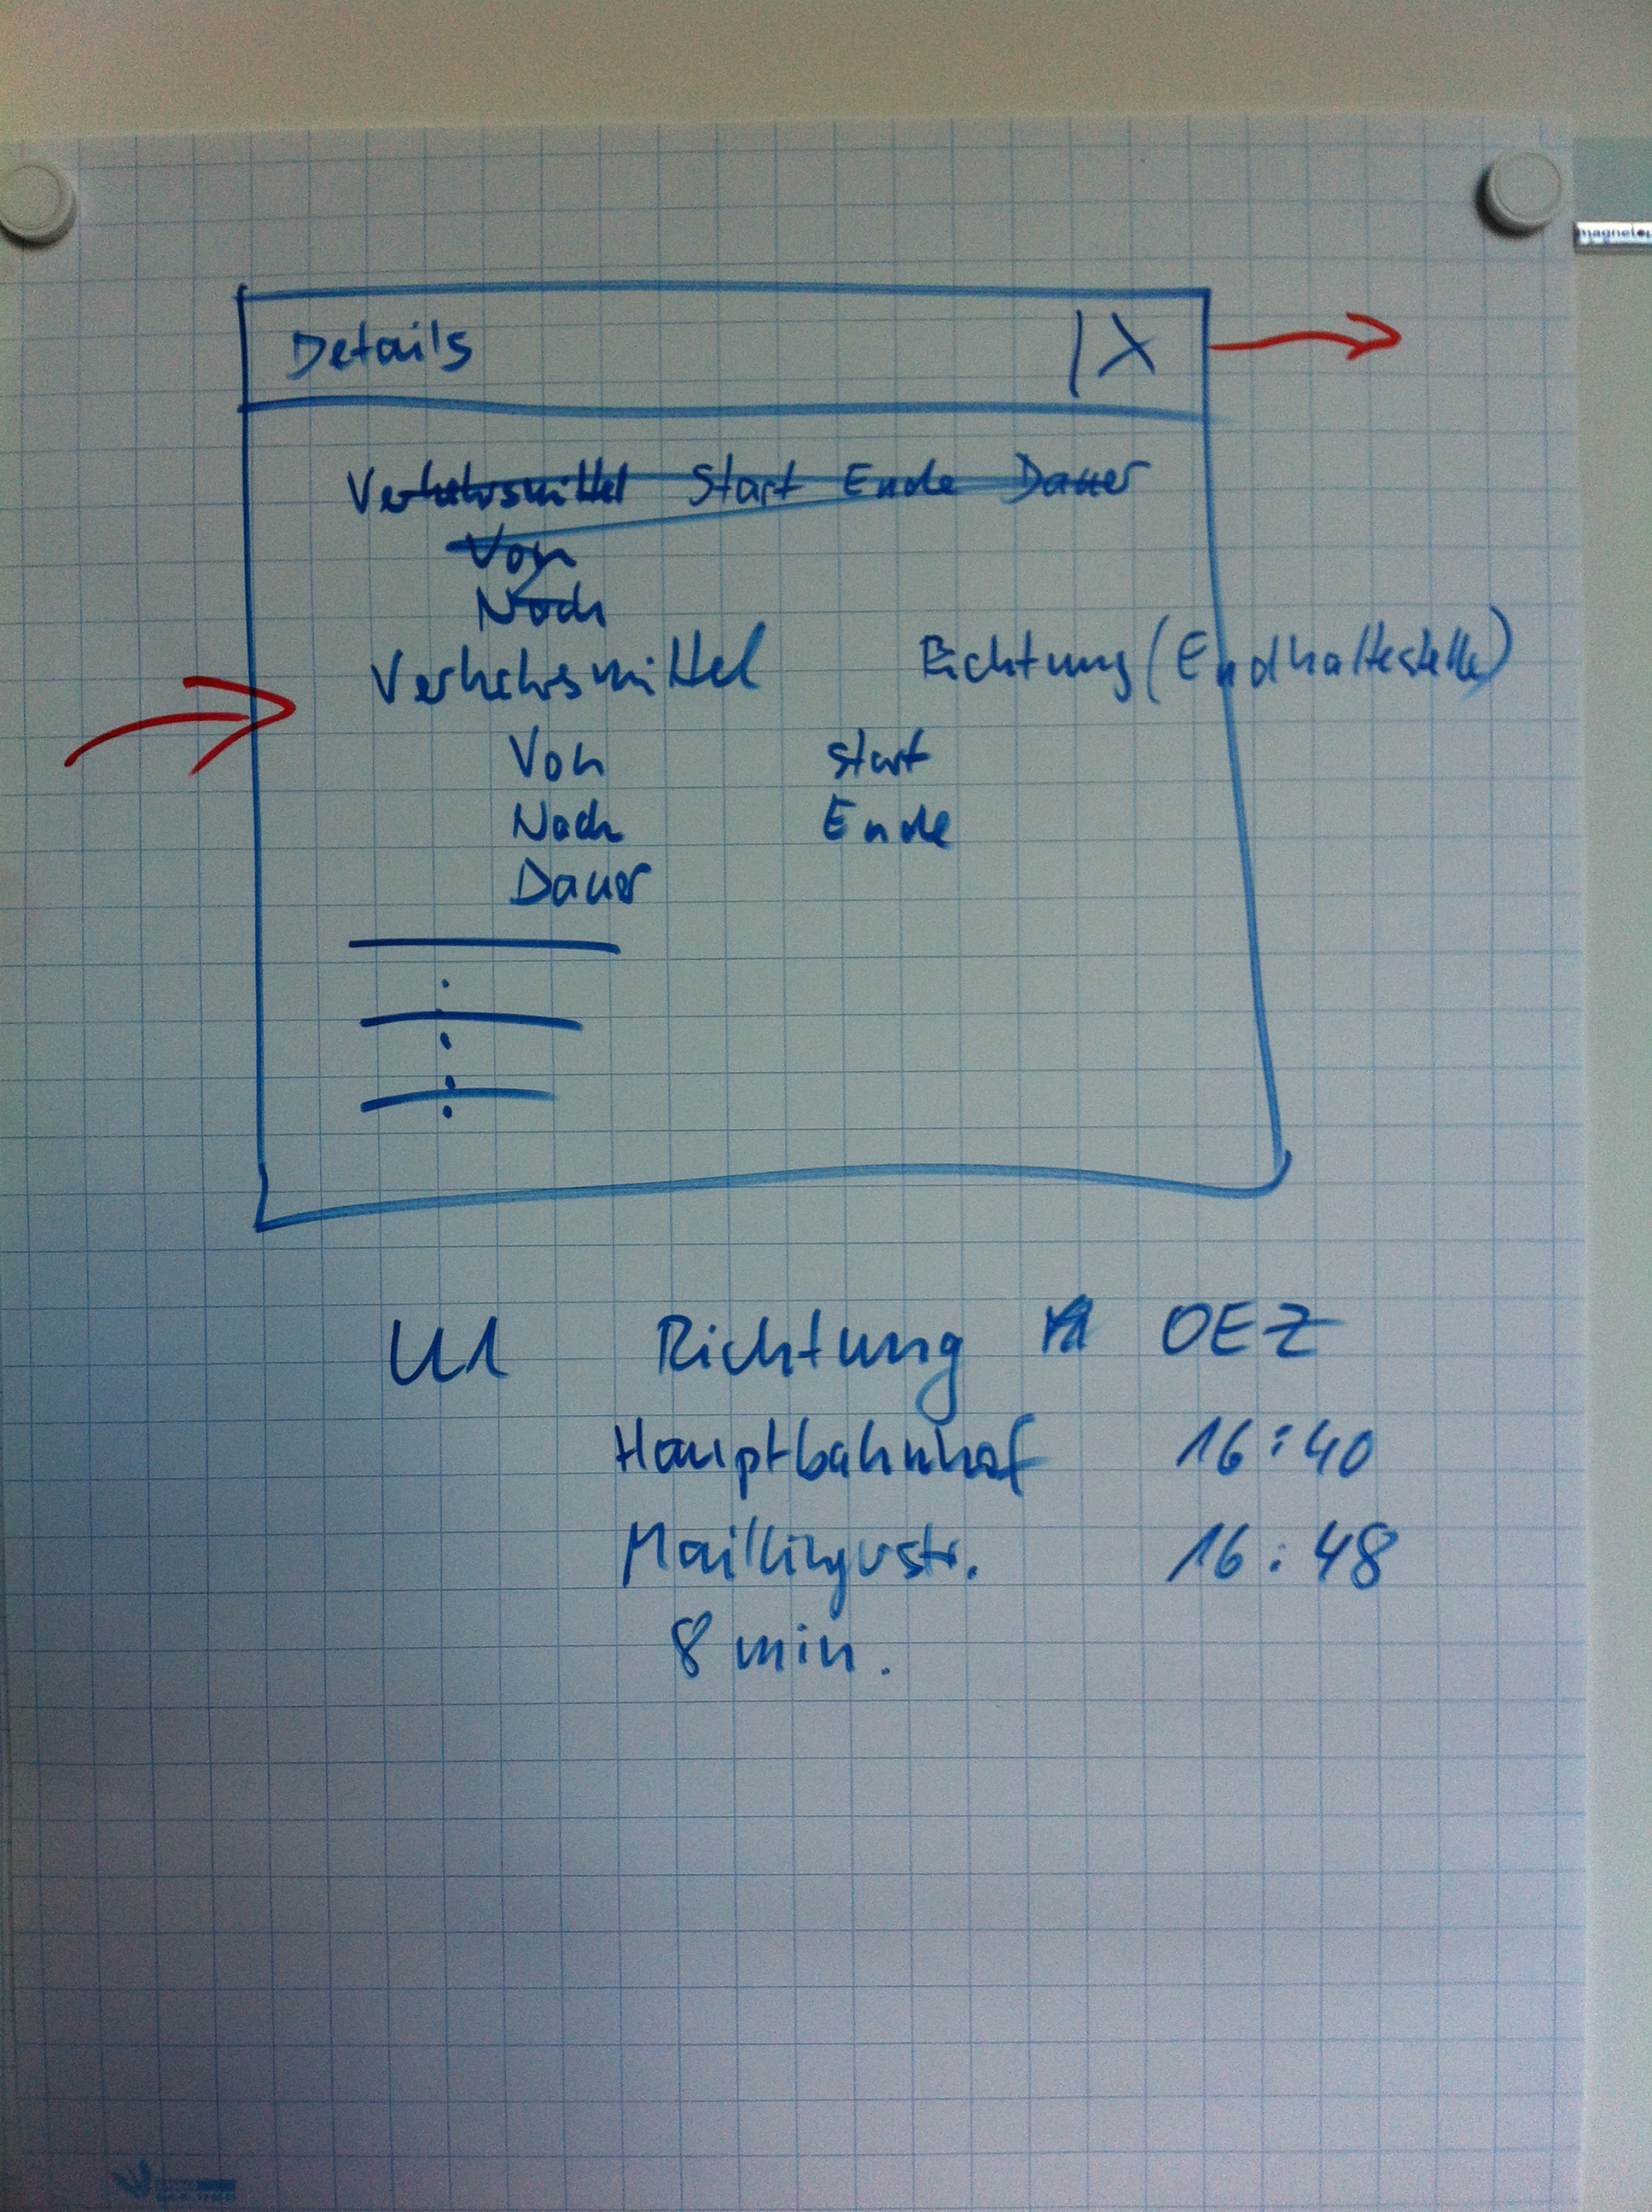 magneto
Details | X
Verkehrsmittel Start Ende Dauer
Von
Nach
Verkehrsmittel Richtung (Endhaltestelle)
Von Start
Nach Ende
Dauer
U1 Richtung OEZ
Hauptbahnhof 16:40
Maillingerstr. 16:48
8 min.